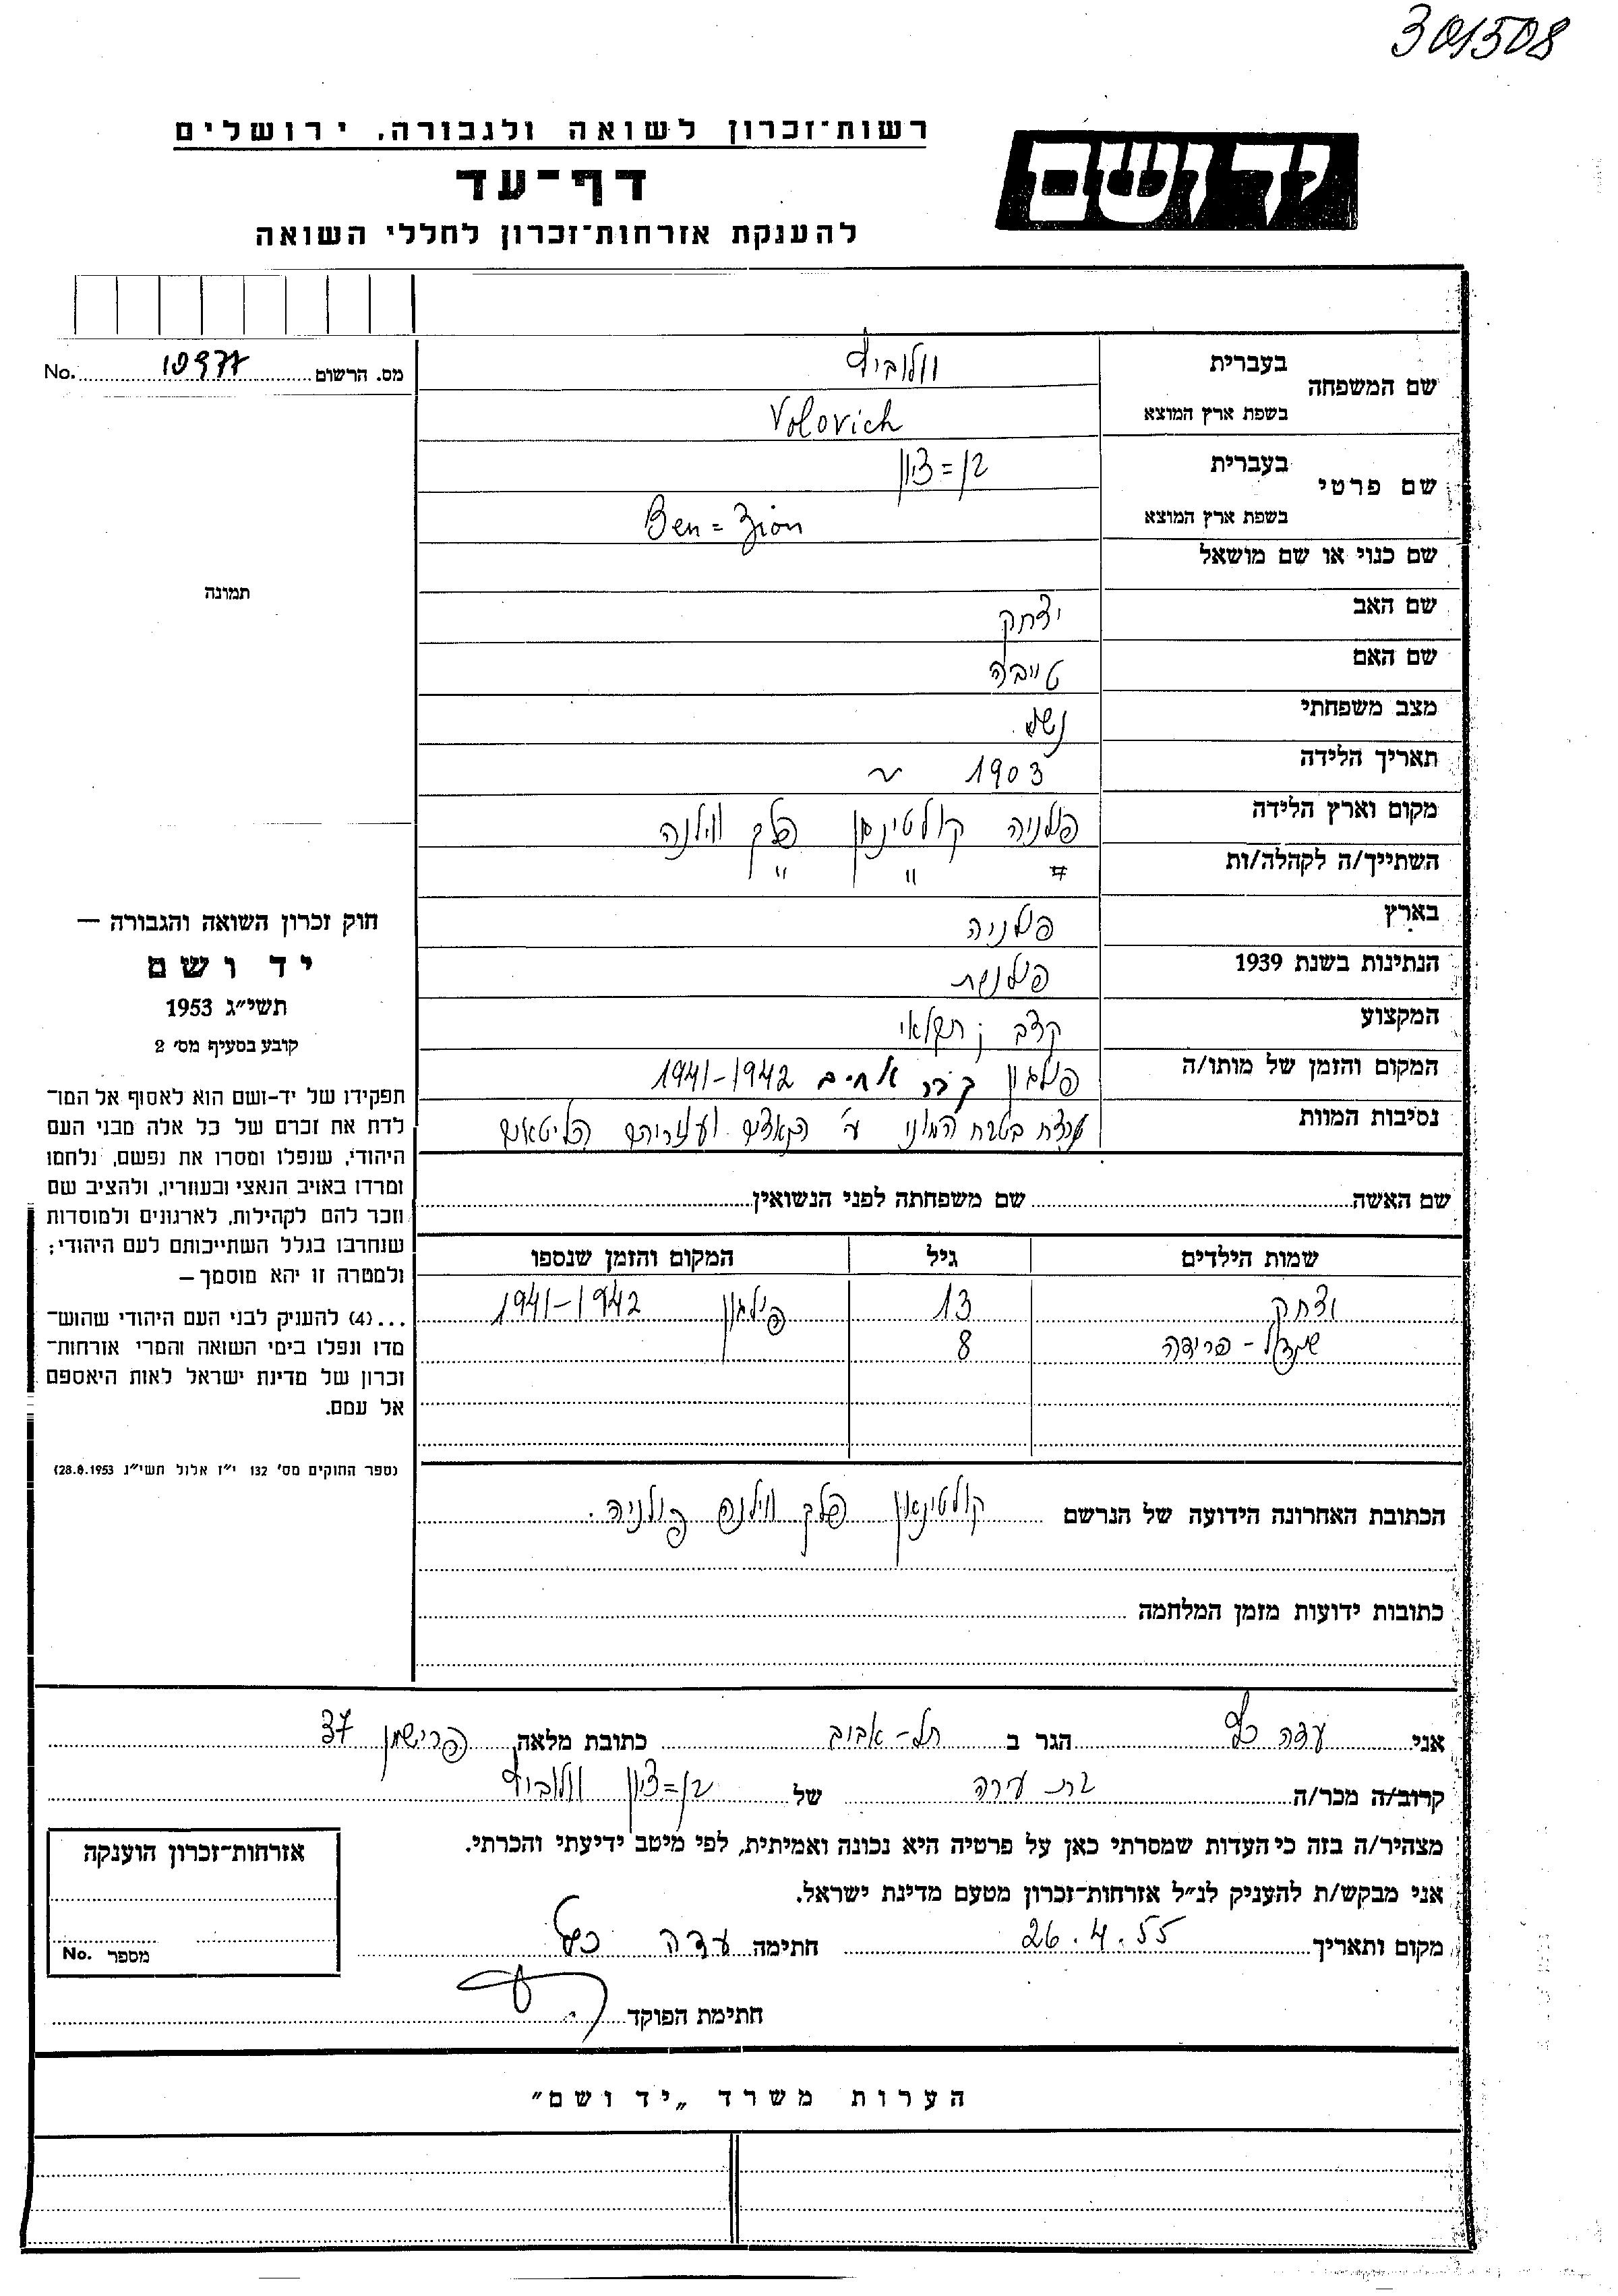 301508
יד ושם
רשות־זכרון לשואה ולגבורה, ירושלים
דף־עד
להענקת אזרחות־זכרון לחללי השואה
מס. הרשום 10977 No.
שם המשפחה
בעברית וולוביץ
בשפת ארץ המוצא Volovich
שם פרטי
בעברית בן=ציון
בשפת ארץ המוצא Ben=Zion
שם כנוי או שם מושאל
תמונה
שם האב יצחק
שם האם טייבה
מצב משפחתי נשוי
תאריך הלידה 1903
מקום וארץ הלידה פולניה קולטינאן פלך ווילנה
השתייך/ה לקהלה/ות " " "
בארץ פולניה
הנתינות בשנת 1939 פולנית
המקצוע קצב ; חקלאי
המקום והזמן של מותו/ה פוליגון קבר אחים 1941-1942
נסיבות המוות נרצח בטבח המוני ע"י הנאצים ועוזריהם הליטאים
שם האשה שם משפחתה לפני הנשואין
שמות הילדים גיל המקום והזמן שנספו
יצחק 13 פוליגון 1941-1942
פרידה 8
הכתובת האחרונה הידועה של הנרשם קולטינאן פלך ווילנה פולניה.
כתובות ידועות מזמן המלחמה
חוק זכרון השואה והגבורה —
יד ושם
תשי״ג 1953
קובע בסעיף מס׳ 2
תפקידו של יד־ושם הוא לאסוף אל המו־
לדת את זכרם של כל אלה מבני העם
היהודי, שנפלו ומסרו את נפשם, נלחמו
ומרדו באויב הנאצי ובעוזריו, ולהציב שם
וזכר להם לקהילות, לארגונים ולמוסדות
שנחרבו בגלל השתייכותם לעם היהודי;
ולמטרה זו יהא מוסמך—
...(4) להעניק לבני העם היהודי שהוש־
מדו ונפלו בימי השואה והמרי אזרחות־
זכרון של מדינת ישראל לאות היאספם
אל עמם.
(ספר החוקים מס׳ 132 י״ז אלול תשי״ג 28.8.1953)
אני עדה כץ הגר ב תל-אביב כתובת מלאה פרישמן 37
קרוב/ה מכר/ה בת עירה של בן=ציון וולוביץ
מצהיר/ה בזה כי העדות שמסרתי כאן על פרטיה היא נכונה ואמיתית, לפי מיטב ידיעתי והכרתי.
אני מבקש/ת להעניק לנ״ל אזרחות־זכרון מטעם מדינת ישראל.
מקום ותאריך 26.4.55 חתימה עדה כץ
חתימת הפוקד
אזרחות־זכרון הוענקה
מספר No.
הערות משרד „יד ושם״